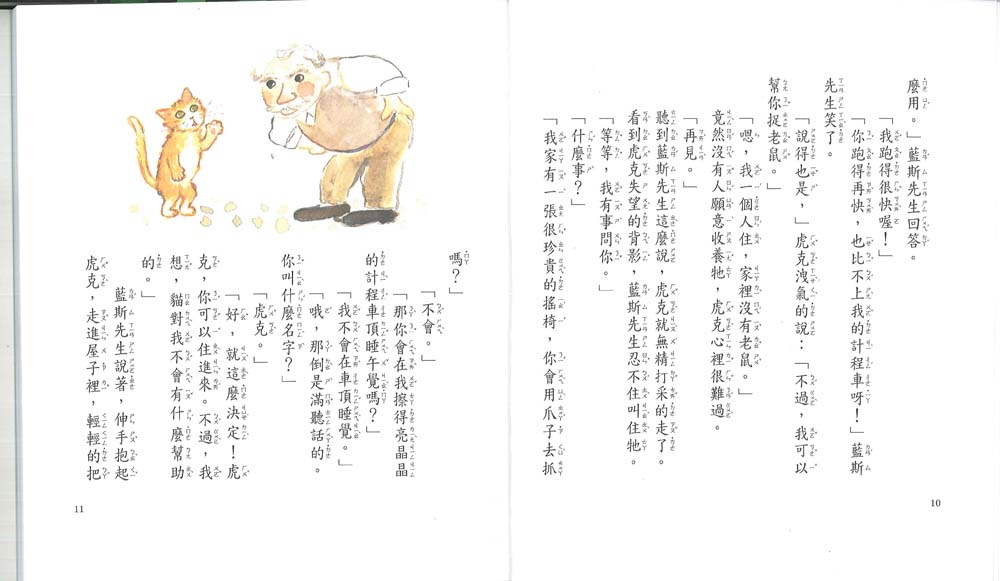 麼用。」藍斯先生回答。
「我跑得很快喔！」
「你跑得再快，也比不上我的計程車呀！」藍斯
先生笑了。
「說得也是，」虎克洩氣的說：「不過，我可以
幫你捉老鼠。」
「嗯，我一個人住，家裡沒有老鼠。」
竟然沒有人願意收養牠，虎克心裡很難過。
「再見。」
聽到藍斯先生這麼說，虎克就無精打采的走了。
看到虎克失望的背影，藍斯先生忍不住叫住牠。
「等等，我有事問你。」
「什麼事？」
「我家有一張很珍貴的搖椅，你會用爪子去抓
10
嗎？」
「不會。」
「那你會在我擦得亮晶晶
的計程車頂睡午覺嗎？」
「我不會在車頂睡覺。」
「哦，那倒是滿聽話的。
你叫什麼名字？」
「虎克。」
「好，就這麼決定！虎
克，你可以住進來。不過，我
想，貓對我不會有什麼幫助
的。」
藍斯先生說著，伸手抱起
虎克，走進屋子裡，輕輕的把
11